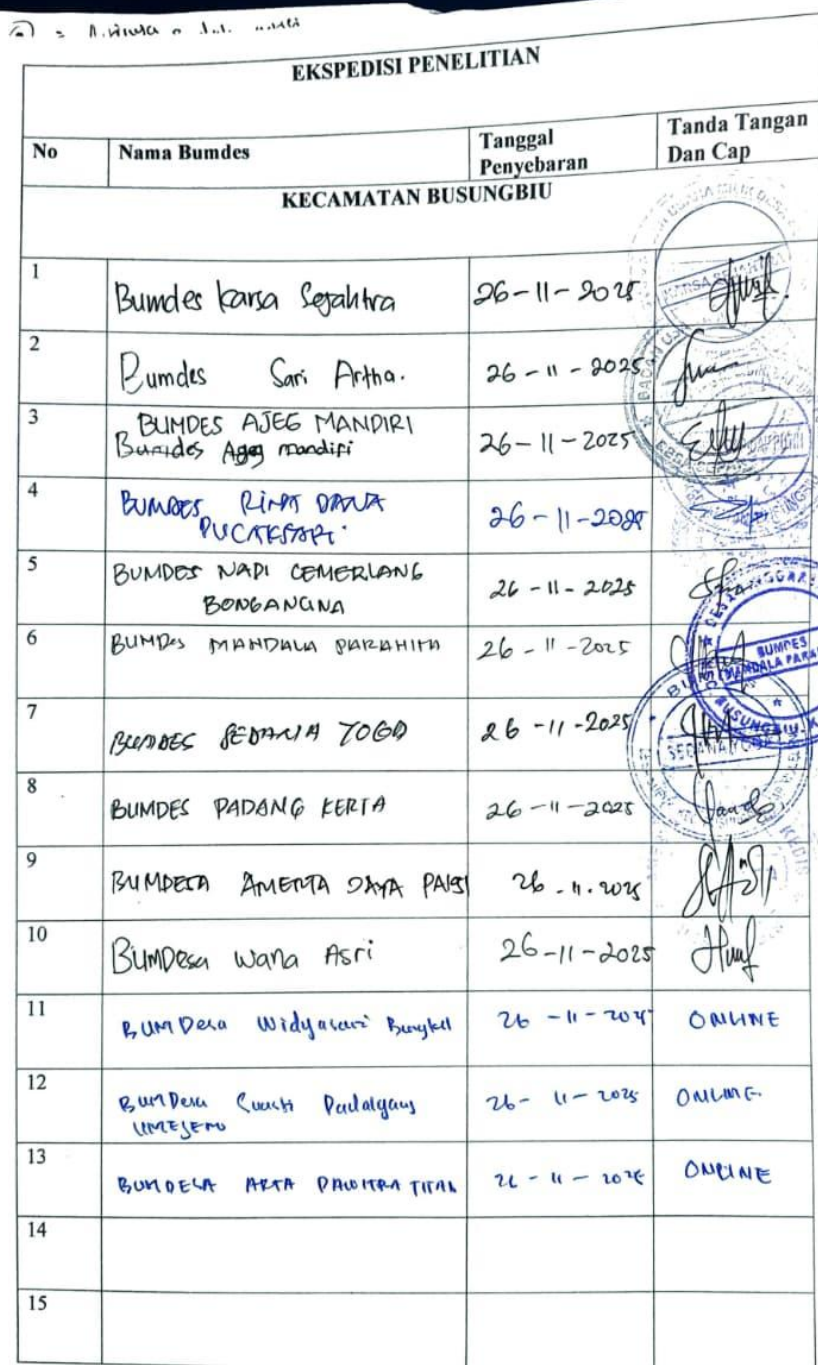 EKSPEDISI PENELITIAN
No Nama Bumdes Tanggal Penyebaran Tanda Tangan Dan Cap
KECAMATAN BUSUNGBIU
1 Bumdes karsa Sejahtra 26-11-2025
2 Bumdes Sari Artha. 26-11-2025
3 BUMDES AJEG MANDIRI
Bumdes Ageg mandiri 26-11-2025
4 BUMDES DANA
PUCAKSARI. 26-11-2025
5 BUMDES NADI CEMERLANG
BONGANCINA 26-11-2025
6 BUMDes MANDALA PARAHITA 26-11-2025
BUMDES
MANDALA PARA
BUSUNGBIU
7 BUMDES SEDANA YOGO 26-11-2025
SEDANA
8 BUMDES PADANG KERTA 26-11-2025
9 BUMDESA AMERTA DAYA 26.11.2025
10 BUMDesa wana Asri 26-11-2025
11 BUMDesa Widyasari 26-11-2025 ONLINE
12 BUMDesa 26-11-2025 ONLINE
UMEJERO
13 BUMDESA ARTA PAWITRA 26-11-2025 ONLINE
14
15